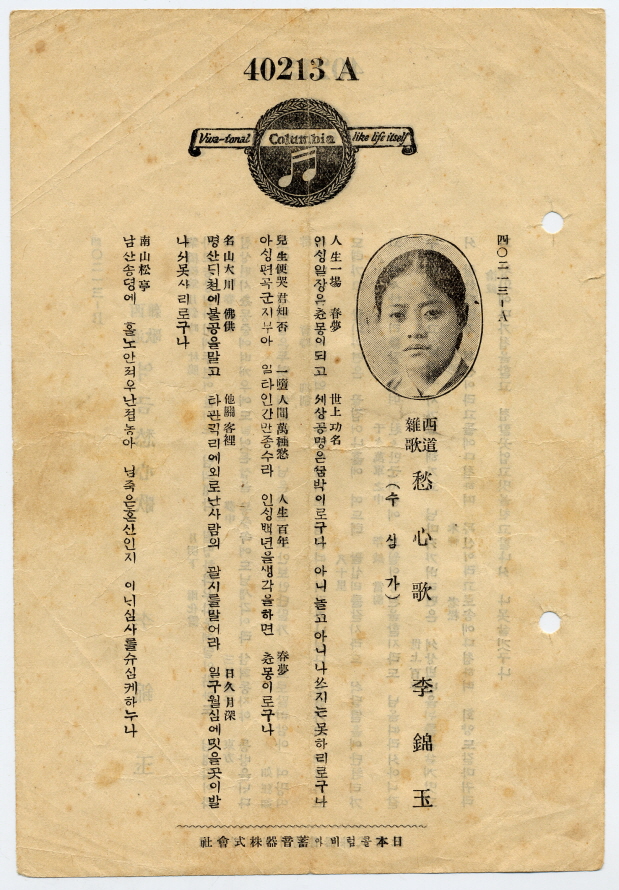 40213 A
Viva-tonal Columbia like life itself
四〇二一三-A
西道
雜歌
愁心歌
(수심가)
李錦玉
人生一場 春夢 世上功名
인싱일장은츈몽이되고 세상공명은 이로구나 아니놀고아니나쓰지는못하리로구나
兒生便哭君知否 一墮人間萬種愁 人生百年 春夢
아싱편곡군지부아 일타인간만종수라 인싱백년을생각을하면 츈몽이로구나
名山大川 佛供 他關客裡 日久月深
명산디쳔에불공을말고 타관 리에외로난사람의 괄시를말어라 일구월심에밋을곳이발
나 못사리로구나
南山松亭
남산송뎡에 홀노안저우난접동아 님죽은혼산인지 이 심사를슈심케하누나
日本콜럼비아蓄音器株式會社